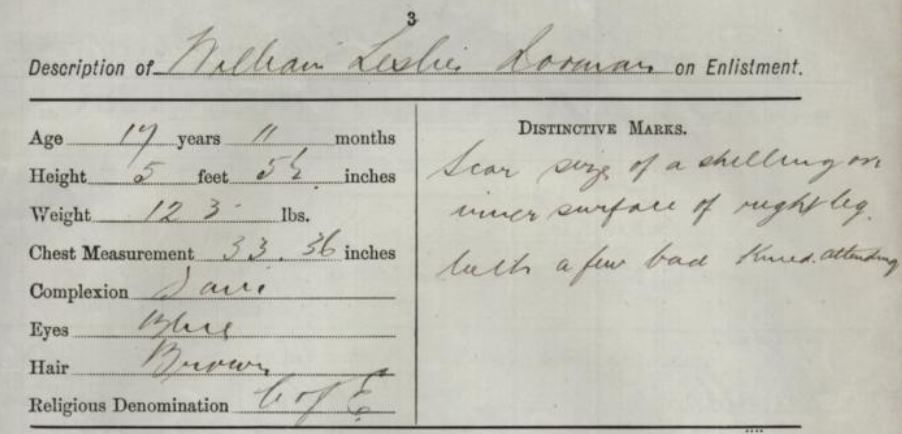 3
Description of William Leslie Dorman on Enlistment.
Age 17 years 11 months
Height 5 feet 5½ inches
Weight 123 lbs.
Chest Measurement 33. 36 inches
Complexion
Eyes Blue
Hair Brown
Religious Denomination C of E.
DISTINCTIVE MARKS.
Scar size of a shilling on
inner surface of right leg.
teeth a few bad attending